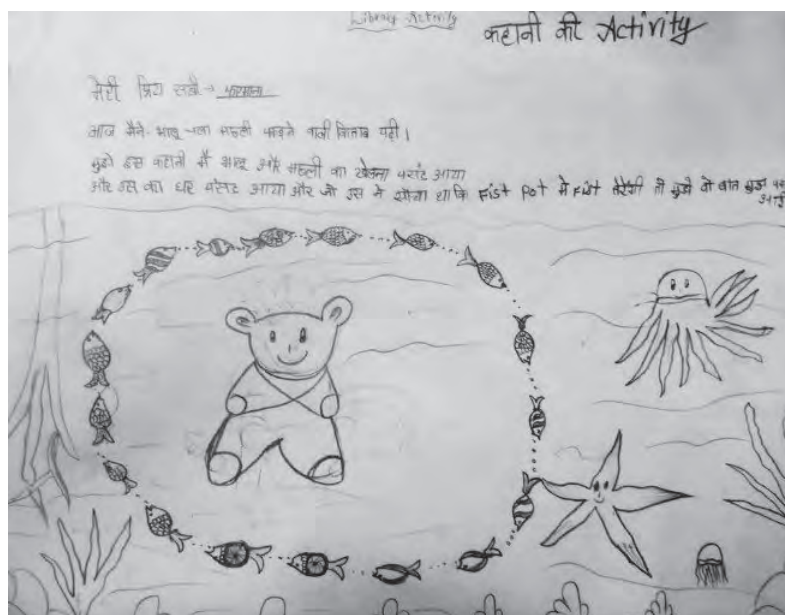 Library Activity
कहानी की Activity
मेरी प्रिय सखी →
आज मैने भालू चला मछली पकड़ने वाली किताब पढ़ी।
मुझे इस कहानी मैं भालू और मछली का खेलना पसंट आया
और उस का घर पसंट आया और जो उस ने सोचा था कि Fist Pot मे Fist तैरेगी तो मुझे वो बात